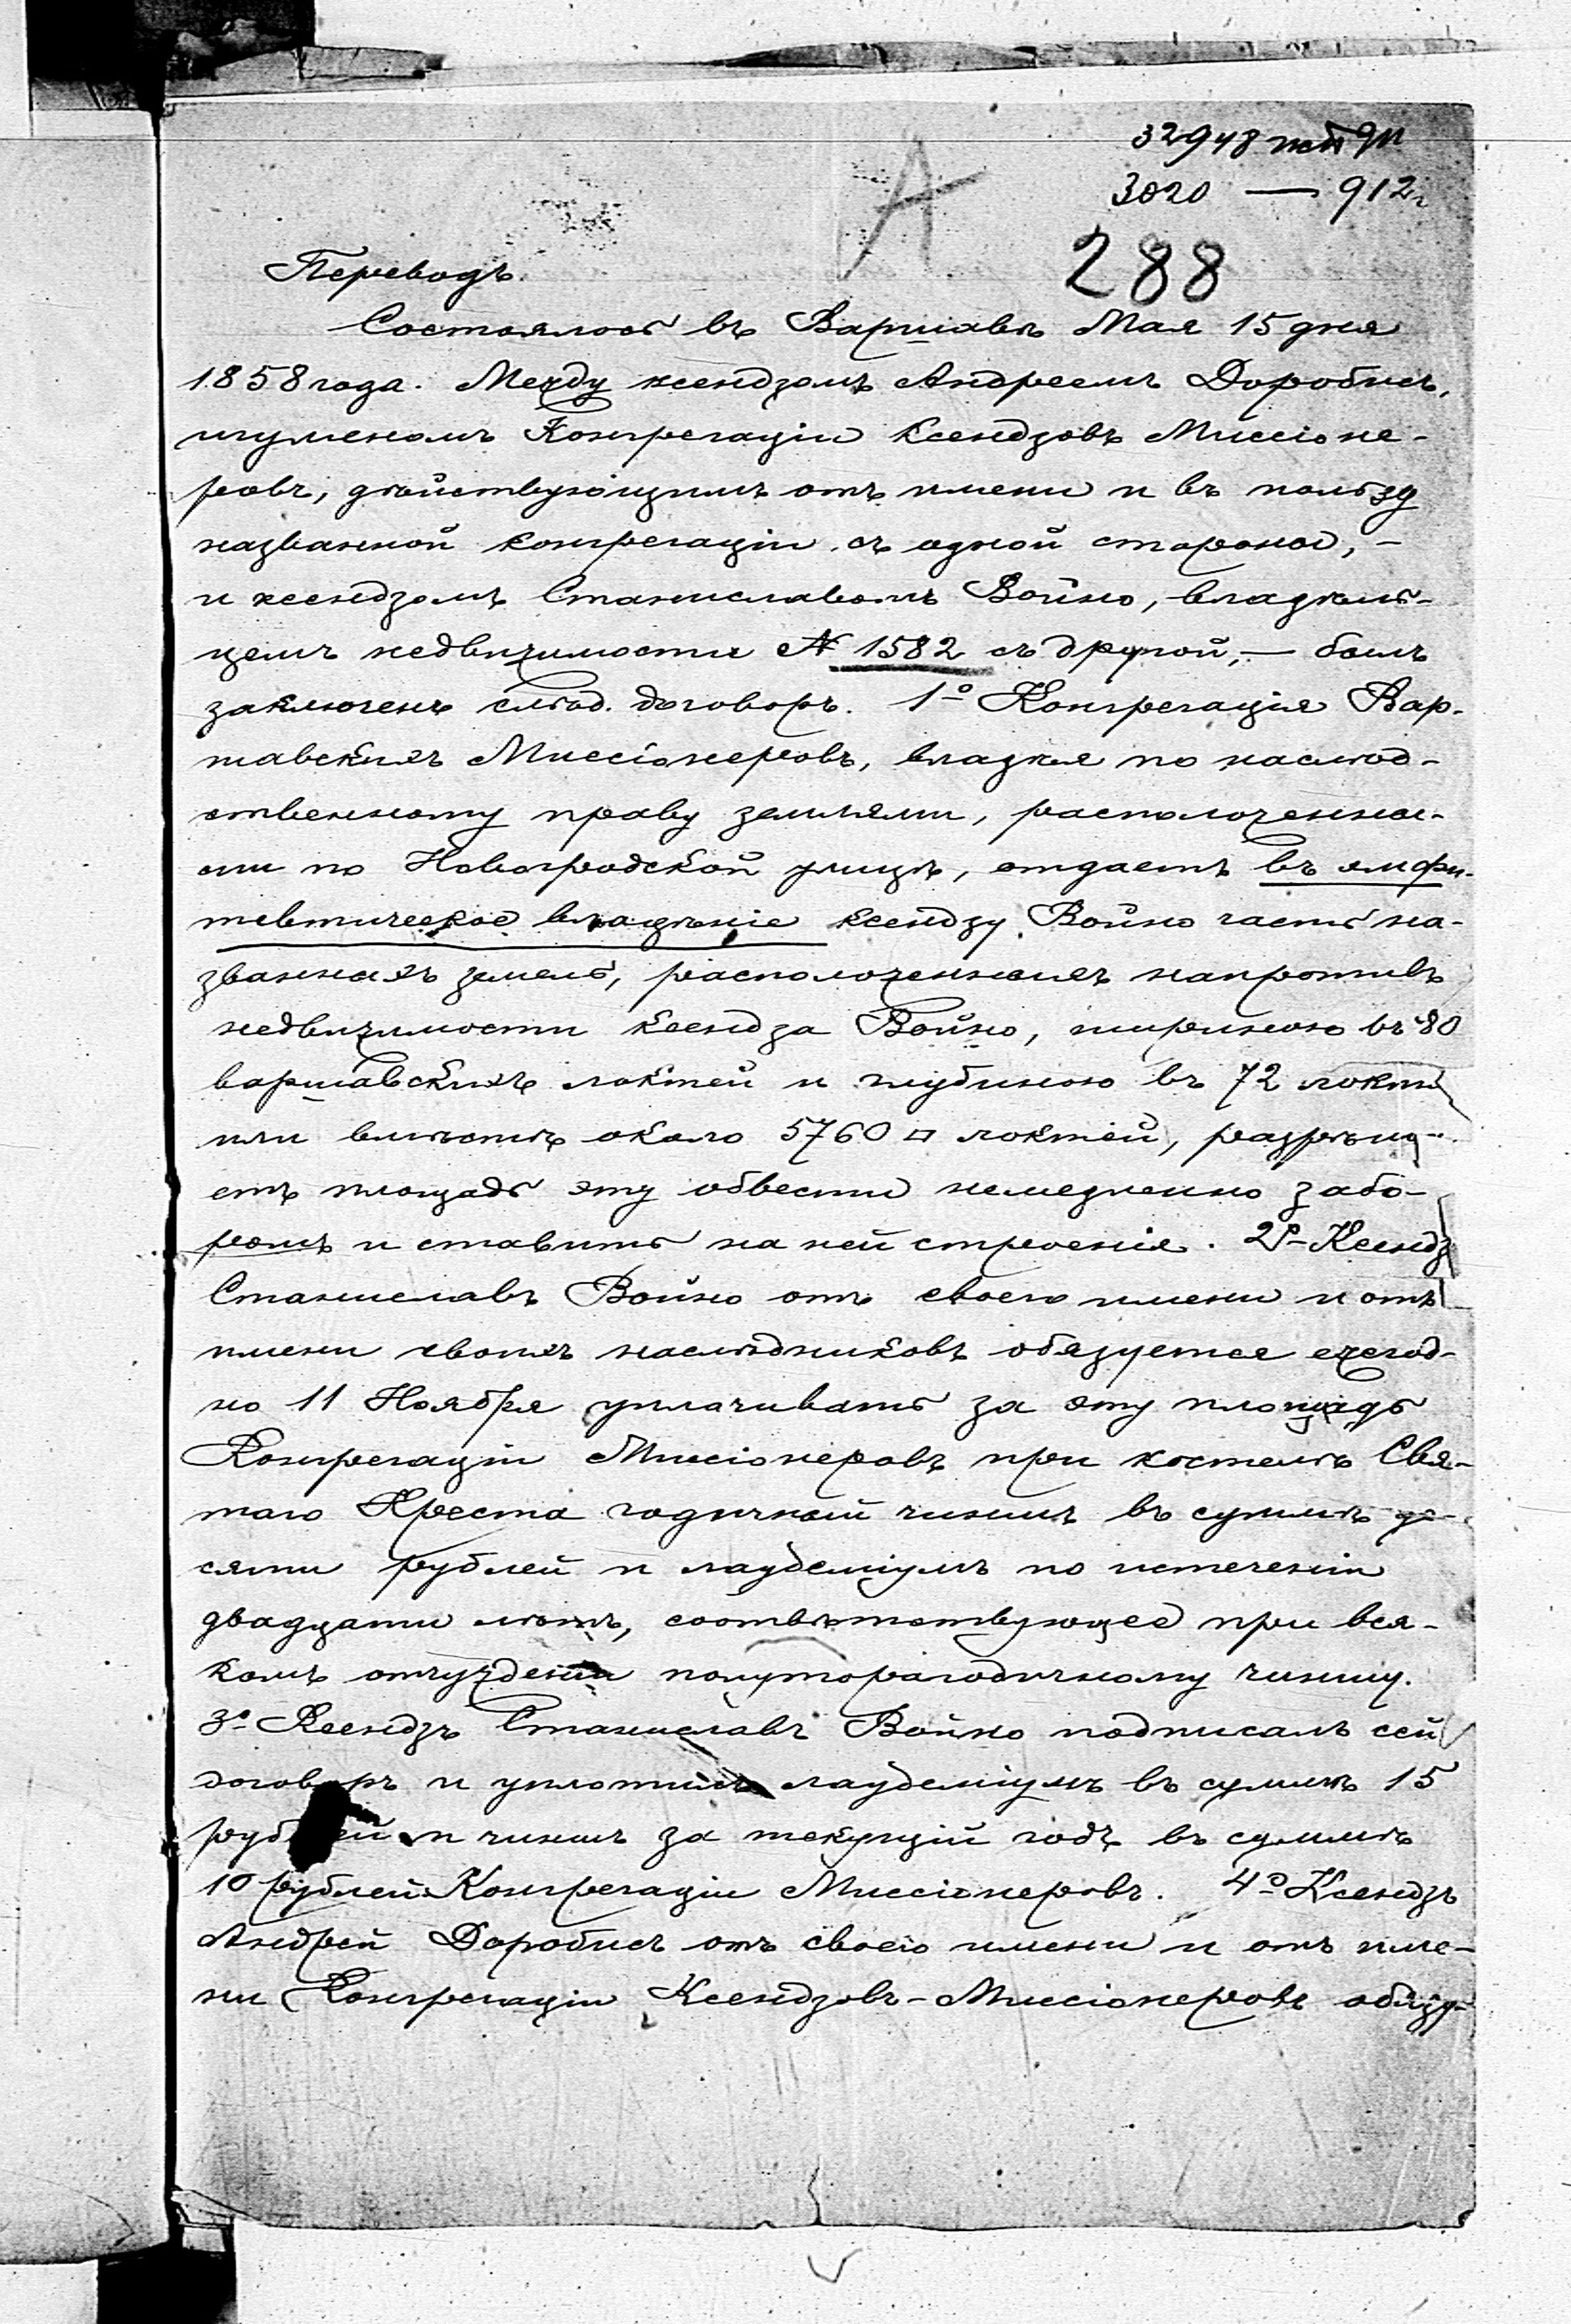 32948
3020 — 912 г
А
288
Переводъ.
Состоялось въ Варшавѣ Мая 15 дня
1858 года. Между ксендзомъ Андреемъ Доробисъ,
игуменомъ Конгрегаціи Ксендзовъ Миссіоне-
ровъ, дѣйствующимъ отъ имени и въ пользу
названной конгрегаціи съ одной стороны, –
и ксендзомъ Станиславомъ Войно, владѣль-
цемъ недвижимости № 1582 съ другой, — былъ
заключенъ слѣд. договоръ. 1º Конгрегація Вар-
шавскихъ Миссіонеровъ, владѣя по наслѣд-
ственному праву землями, расположенны-
ми по Новогродской улицѣ, отдаетъ въ эмфи-
тевтическое владѣніе ксендзу Войно часть на-
званныхъ земель, расположенныхъ напротивъ
недвижимости ксендза Войно, шириною въ 80
варшавскихъ локтей и глубиною въ 72 локтя
или вмѣстѣ около 5760 □ локтей, разрѣша-
етъ площадь эту обвести немедленно забо-
ромъ и ставить на ней строенія. 2º Ксендз
Станиславъ Войно отъ своего имени и отъ
имени своихъ наслѣдниковъ обязуется ежегод-
но 11 Ноября уплачивать за эту площадь
Конгрегаціи Миссіонеровъ при костелѣ Свя-
того Креста годичный чиншъ въ суммѣ де-
сяти рублей и лаудеміумъ по истеченіи
двадцати лѣтъ, соотвѣтствующее при вся-
комъ отчужденіи полуторагодичному чиншу.
3º Ксендзъ Станиславъ Войно подписалъ сей
договоръ и уплотилъ лаудеміумъ въ суммѣ 15
рублей и чиншъ за текущій годъ въ суммѣ
10 рублей Конгрегаціи Миссіонеровъ. 4º Ксендзъ
Андрей Доробисъ отъ своего имени и отъ име-
ни Конгрегаціи Ксендзовъ-Миссіонеровъ обязу-